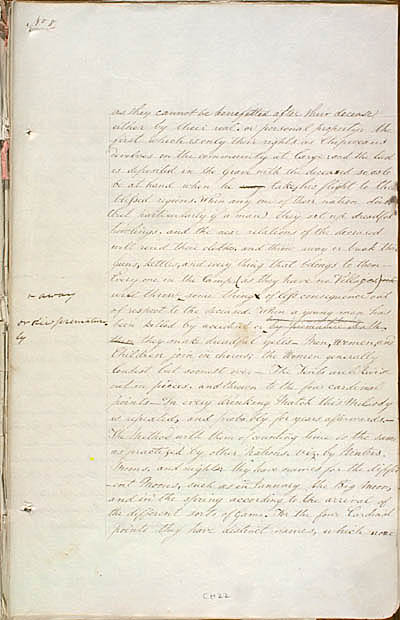 as they cannot be benefitted after their decease
either by their real or personal property. The
first which is only their rights as Chipeweans
involves on the community at large and the last
is deposited in the grave with the deceased so as to
be at hand when he takes his flight to the
blessed regions. When any one of their nation dies
that particularly of a man they set up dreadful
howlings, and the near relations of the deceased
will rend their clothes and throw away or break their
Guns, kettles, and every thing that belongs to them
Every one in the Camp (as they have no Villages)
will throw some things of less consequence out
- away
of respect to the deceased. When a young man has
or dies premature
been killed by accident or by premature death
by
they make dreadful yells - Men, Women, and
Children join in chorus; the Women generally
loudest but soonest over - The Tents are
cut in pieces, and thrown to the four cardinal
points - In every drinking Match this Melody
is repeated, and probably for years afterwards -
The Method with them of counting time is the same
as practized by other Nations. viz by Winters
Moons, and nights they have names for the differ
-ent Moons, such as in January the Big Moon,
and in the spring according to the arrival of
the different sorts of Game. For the four Cardinal
points they have distinct names, which none
CH22